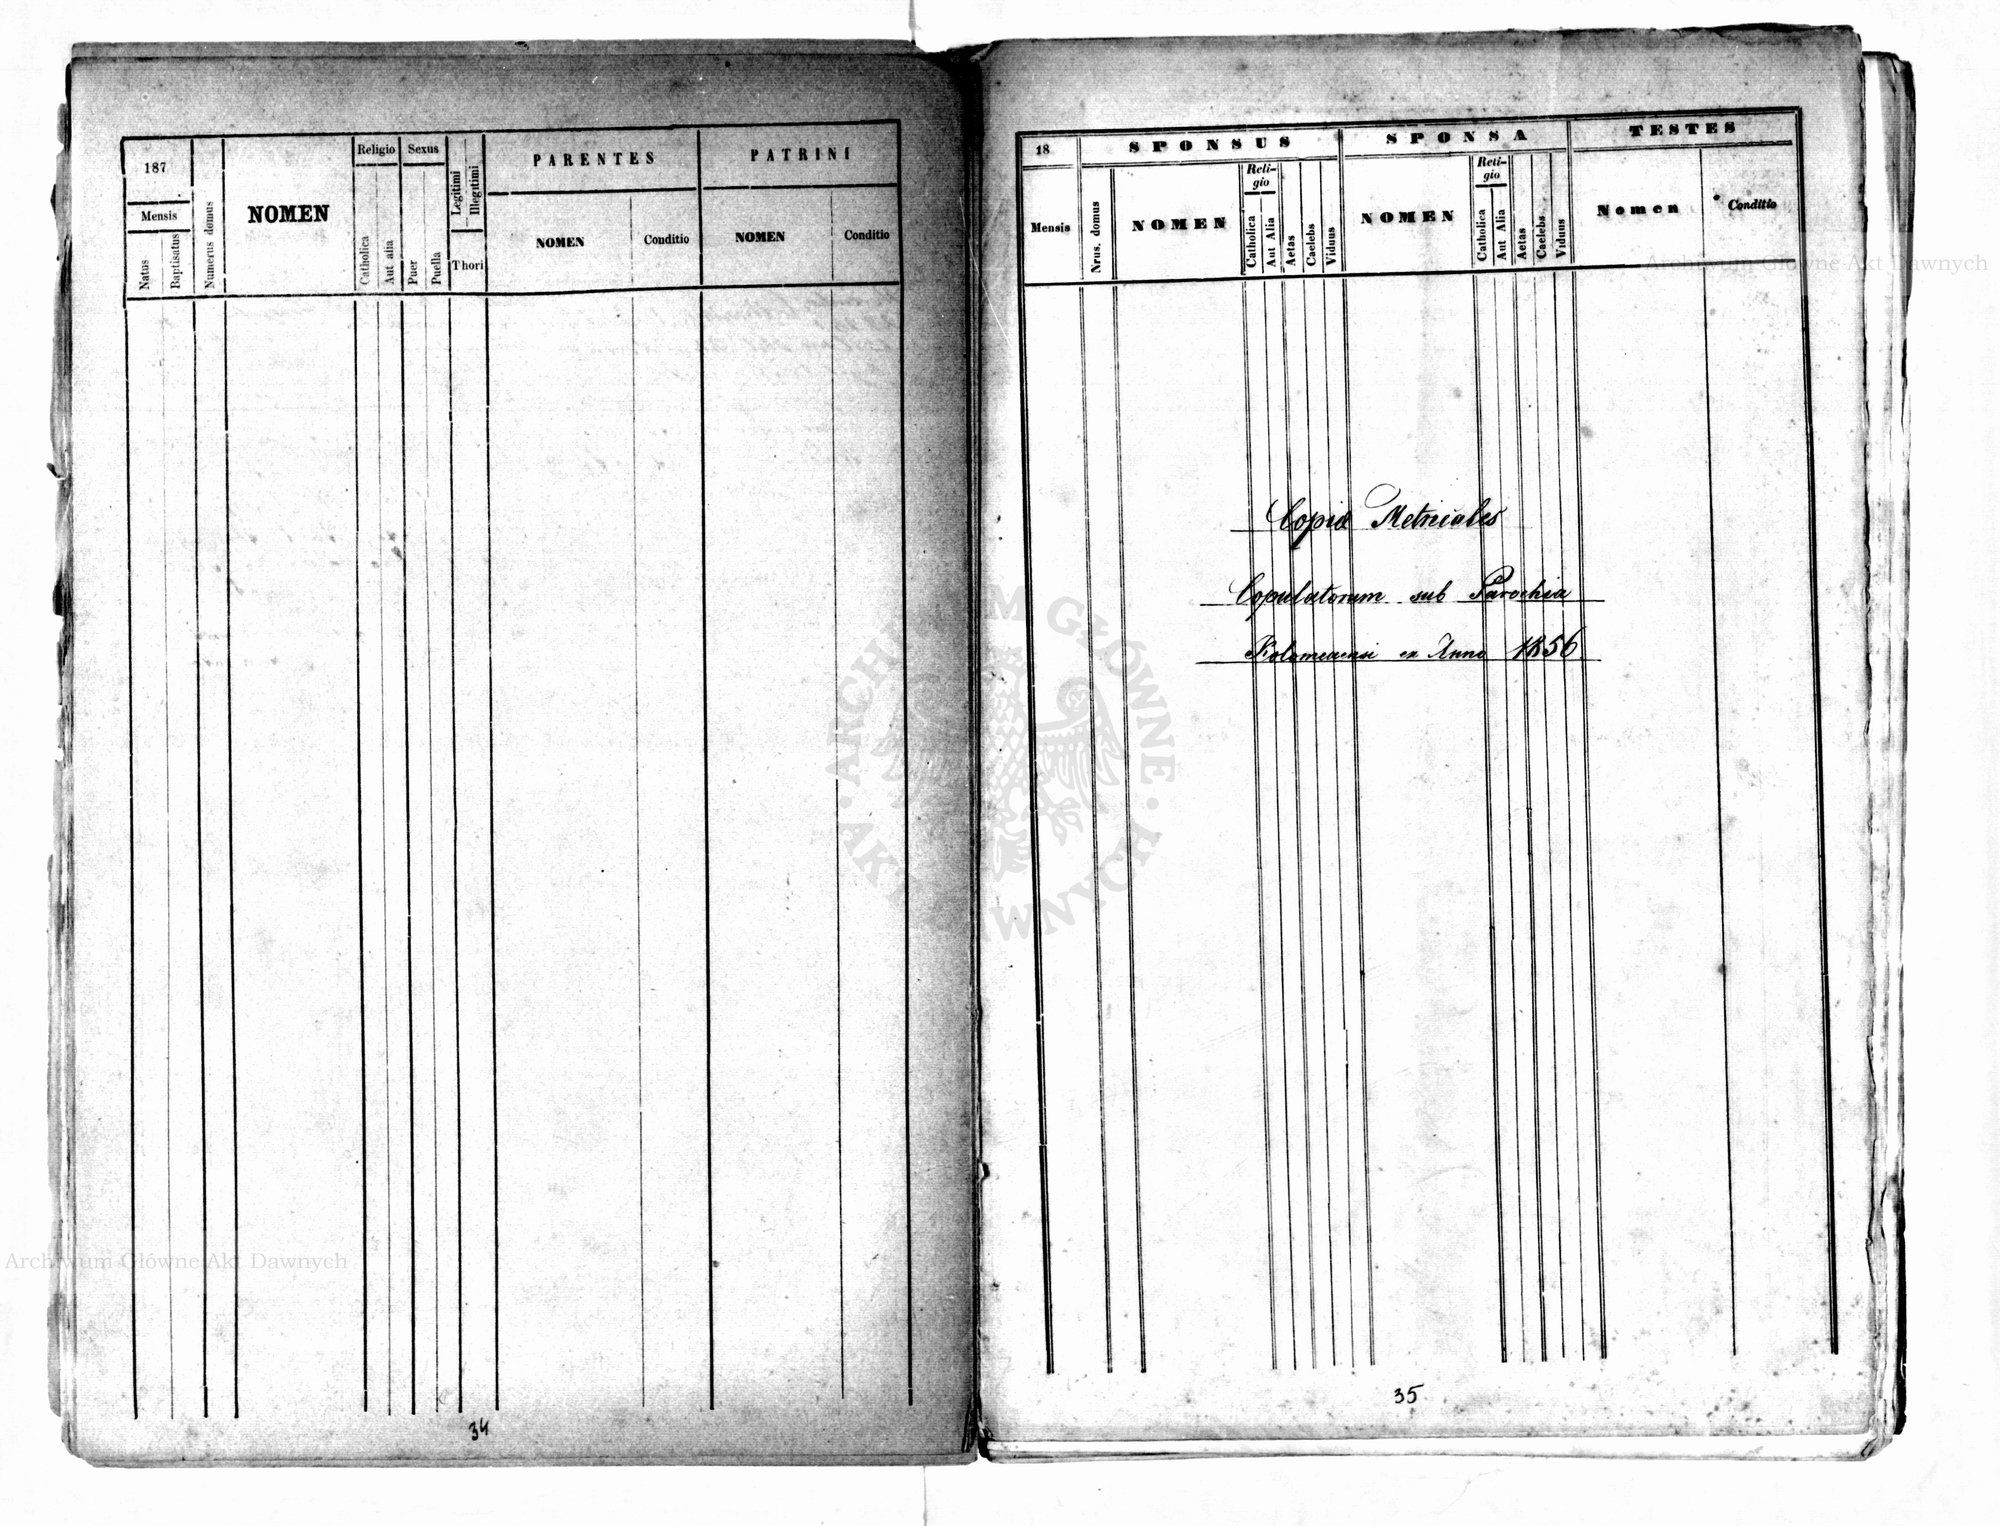 187
Mensis
Natus
Baptisatus
Numerus domus
NOMEN
Religio
Catholica
Aut alia
Sexus
Puer
Puella
Legitimi
Illegitimi
Thori
PARENTES
NOMEN
Conditio
PATRINI
NOMEN
Conditio
34
18
Mensis
SPONSUS
Nrus. domus
NOMEN
Reli-
gio
Catholica
Aut Alia
Aetas
Caelebs
Viduus
SPONSA
NOMEN
Reli-
gio
Catholica
Aut Alia
Aetas
Caelebs
Viduus
TESTES
Nomen
Conditio
Copiæ Metricales
Copulatorum sub Parochia
Kolomeaensi ex Anno 1856
35
Archiwum Główne Akt Dawnych
Archiwum Główne Akt Dawnych
ARCHIWUM GŁÓWNE
AKT DAWNYCH